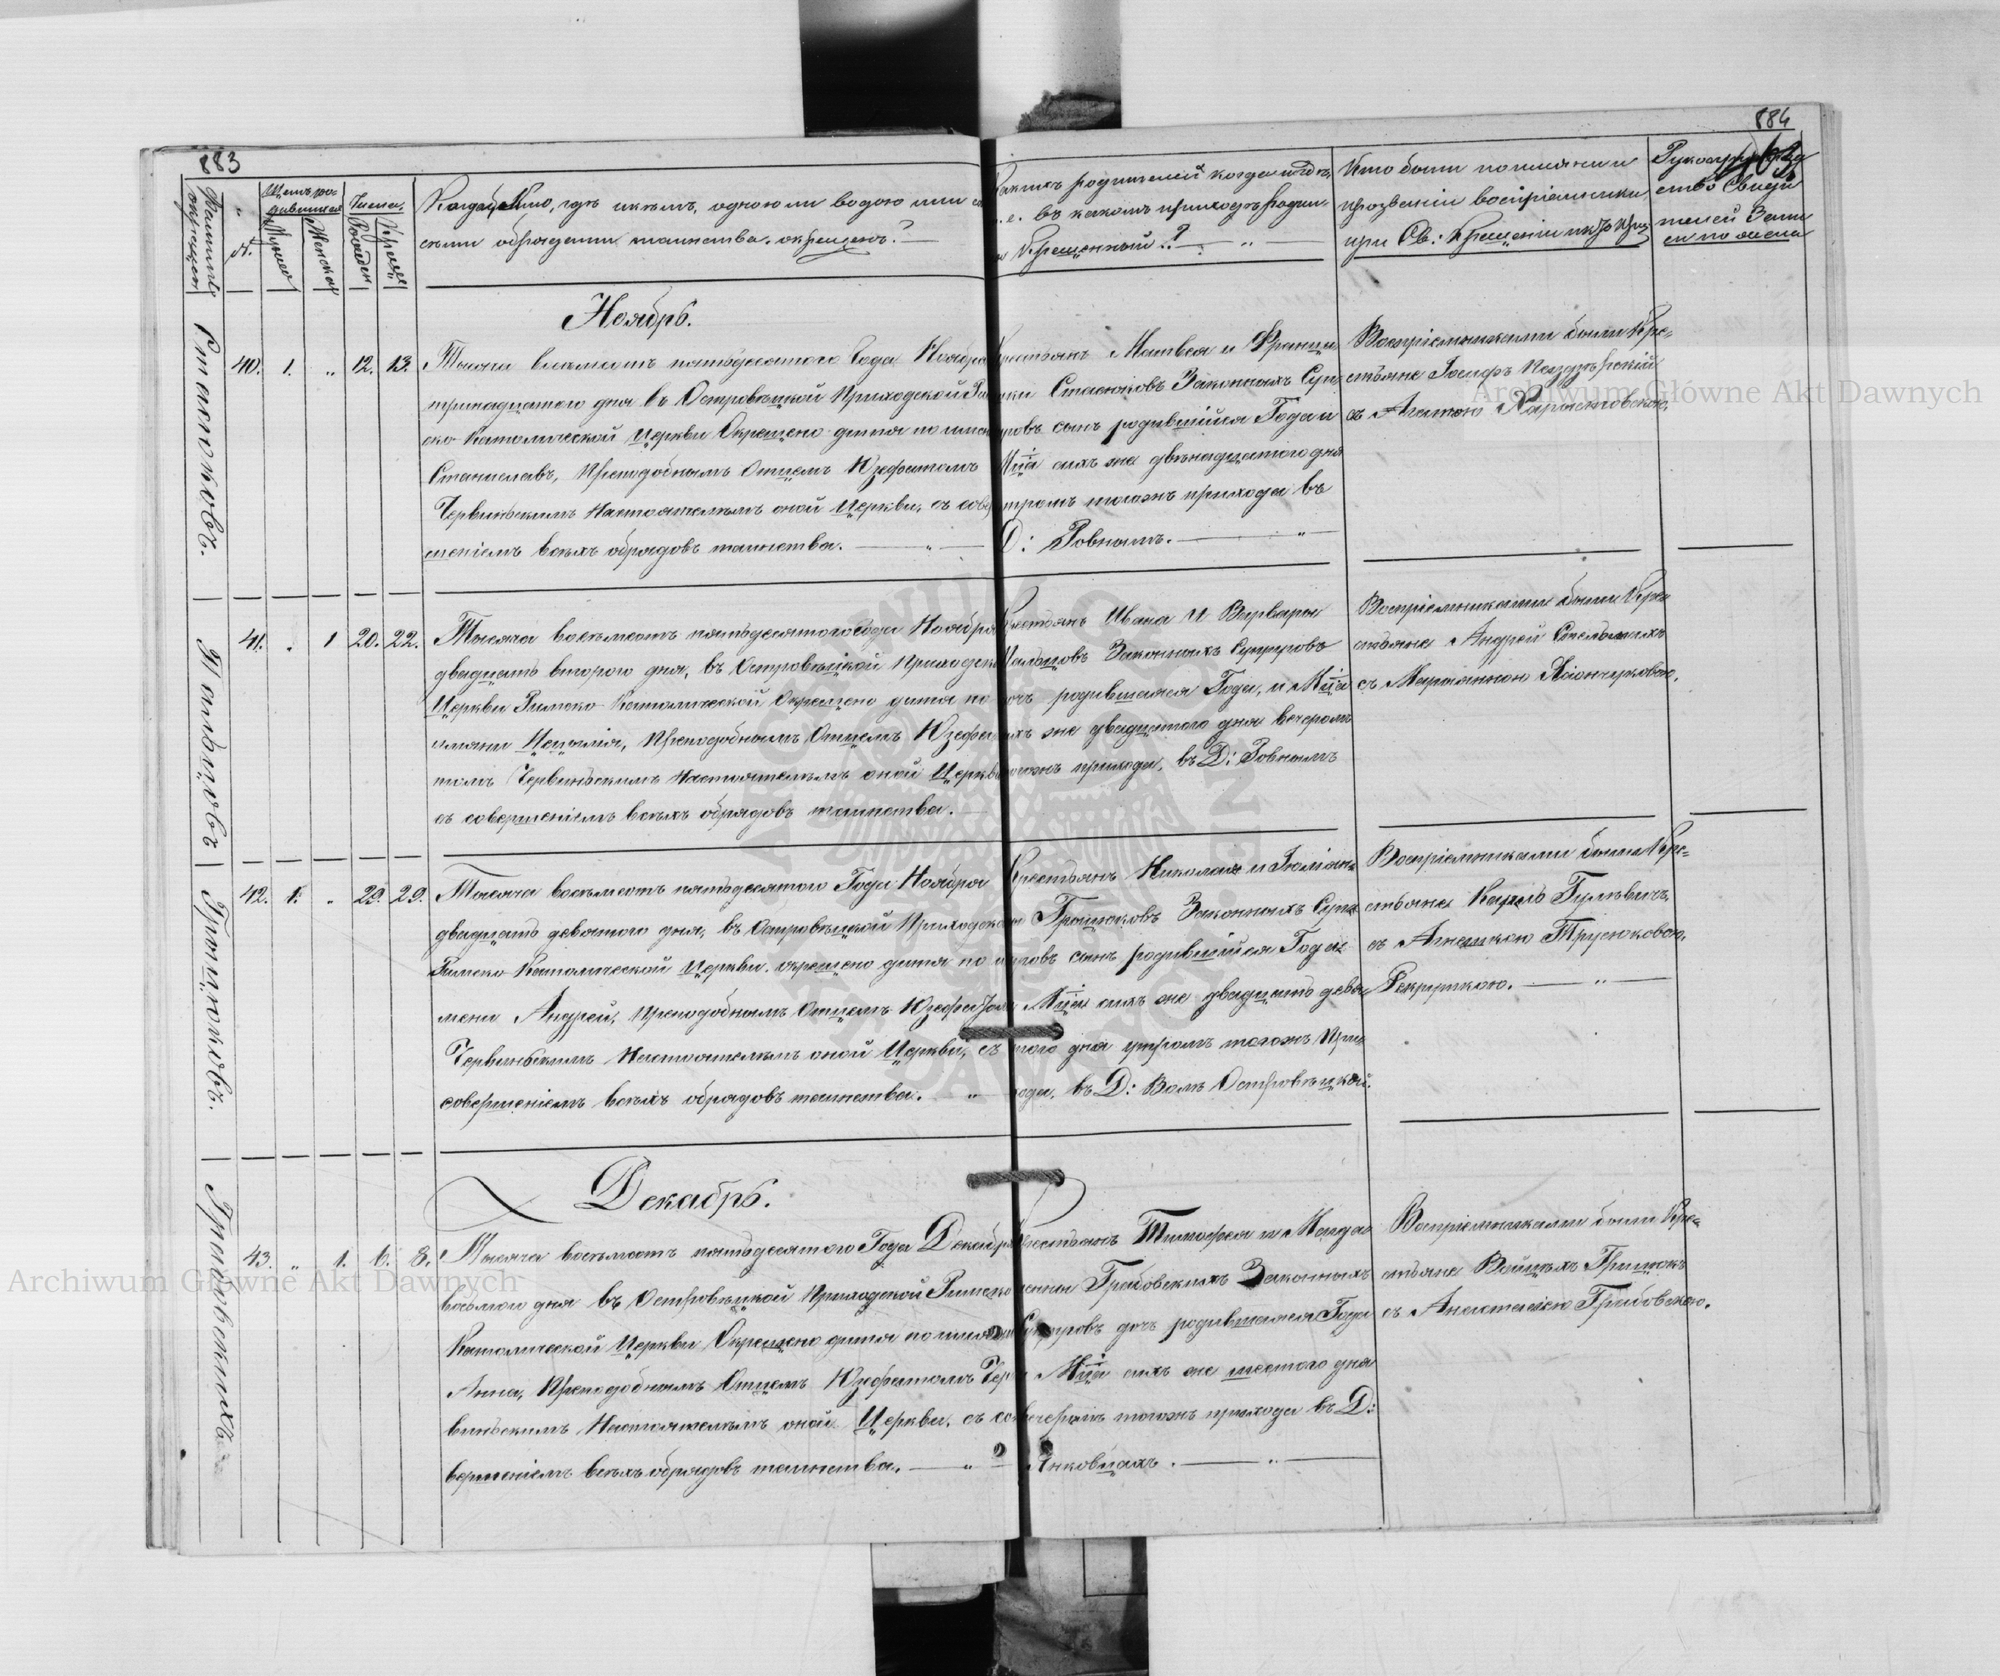 883
884
463
Фамилія окрещен.
№.
Щетъ родившихся
Мужес.
Женска
Числа.
Рожден
Крещ.
Когда, Кто, гдѣ и кѣмъ, одною ли водою или со
всѣми обрядами таинства окрещенъ?
какихъ родителей когда и гдѣ
т. е. въ какомъ приходѣ родил.
и Крещенный?
Кто были по имяни и
прозвеніи воспріемники
при Св: Крещеніи
Свиде
телей Запи
си по
Ноябрь.
Стасюковъ.
40. 1. „ 12. 13.
Тысяча восемьсотъ пятьдесятого Года Ноября
тринадцатого дня въ Островѣцкой Приходской Рим
ско-Католической Церкви Окрещено дитя по имени
Станиславъ, Преподобнымъ Отцемъ Юзефатомъ
Червинскимъ Настоятелемъ оной Церкви, съ совер
шеніемъ всѣхъ обрядовъ таинства.
Крестьянъ Матвея и Франци
шки Стасюковъ Законныхъ Суп
руговъ сынъ родившійся Года и
Мца сихъ же двѣнадцатого дня
утромъ тогожъ прихода въ
Д: Ровномъ.
Воспріемниками были Кре-
стьяне Іосифъ
съ Агатою
Мальцовъ
41. „ 1 20. 22.
Тысяча восемьсотъ пятьдесятого Года Ноября
двадцать второго дня, въ Островѣцкой Приходской
Церкви Римско-Католической Окрещено дитя по
имяни Цецилія, Преподобнымъ Отцемъ Юзефа
томъ Червинскимъ Настоятелемъ оной Церкви
съ совершеніемъ всѣхъ обрядовъ таинства.
Крестьянъ Ивана и Варвары
Мальцовъ Законныхъ Супруговъ
дочь родившаяся Года, и Мца
сихъ же двадцатого дня вечеромъ
тогожъ прихода, въ Д: Ровномъ
Воспріемниками были Кре
стьяне Андрей
съ Маріанною
Грицюковъ.
42. 1. „ 29. 29.
Тысяча восемьсотъ пятьдесятого Года Ноября
двадцать девятого дня, въ Островѣцкой Приходской
Римско-Католической Церкви окрещено дитя по и
мени Андрей, Преподобнымъ Отцемъ Юзефатомъ
Червинскимъ Настоятелемъ оной Церкви, съ
совершеніемъ всѣхъ обрядовъ таинства. „
Крестьянъ Николая и Юліан
ны Грицюковъ Законныхъ Супр
уговъ сынъ родившійся Года и
Мца сихъ же двадцать девя
того дня утромъ тогожъ При
хода, въ Д: Волѣ Островѣцкой.
Воспріемниками были Кре-
стьяне Гулевичъ
съ Агнешкою Трусюковою,
Рекруткою.
Декабрь.
Грабовскихъ
43. „ 1. 6. 8.
Тысяча восемьсотъ пятьдесятого Года Декабря
восьмого дня въ Островѣцкой Приходской Римско
Католической Церкви Окрещено дитя по имени
Анна, Преподобнымъ Отцемъ Юзефатомъ Чер
винскимъ Настоятелемъ оной Церкви, съ со
вершеніемъ всѣхъ обрядовъ таинства.
Крестьянъ Тимофея и Магда
лены Грабовскихъ Законныхъ
Супруговъ дочь родившаяся Года
Мца сихъ же шестого дня
вечеромъ тогожъ прихода въ Д:
Янковцахъ.
Воспріемниками были Кре-
стьяне Войцѣхъ Грицюкъ
съ Анастасіею Грабовскою.
Archiwum Główne Akt Dawnych
Archiwum Główne Akt Dawnych